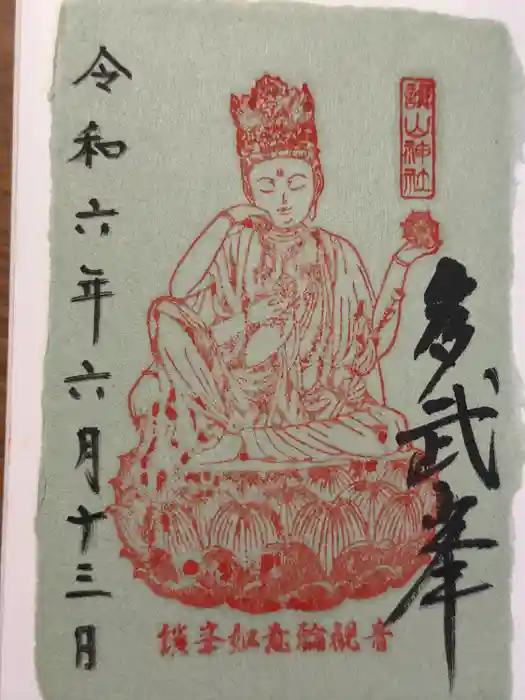 談山神社
多武峯
令和六年六月十三日
談峯如意輪観音